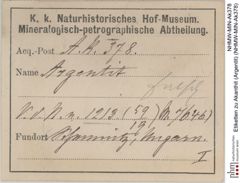 K. k. Naturhistorisches Hof-Museum.
Mineralogisch-petrographische Abtheilung.
Acq.-Post A.k. 378.
Name Argentit
falsch
V. d. N. a. 1213 (59
Fundort Schemnitz, Ungarn
I
NHMW-MIN-Ak378
Etiketten zu Akanthit (Argentit) (NHMW-MIN-Ak378)
nhm